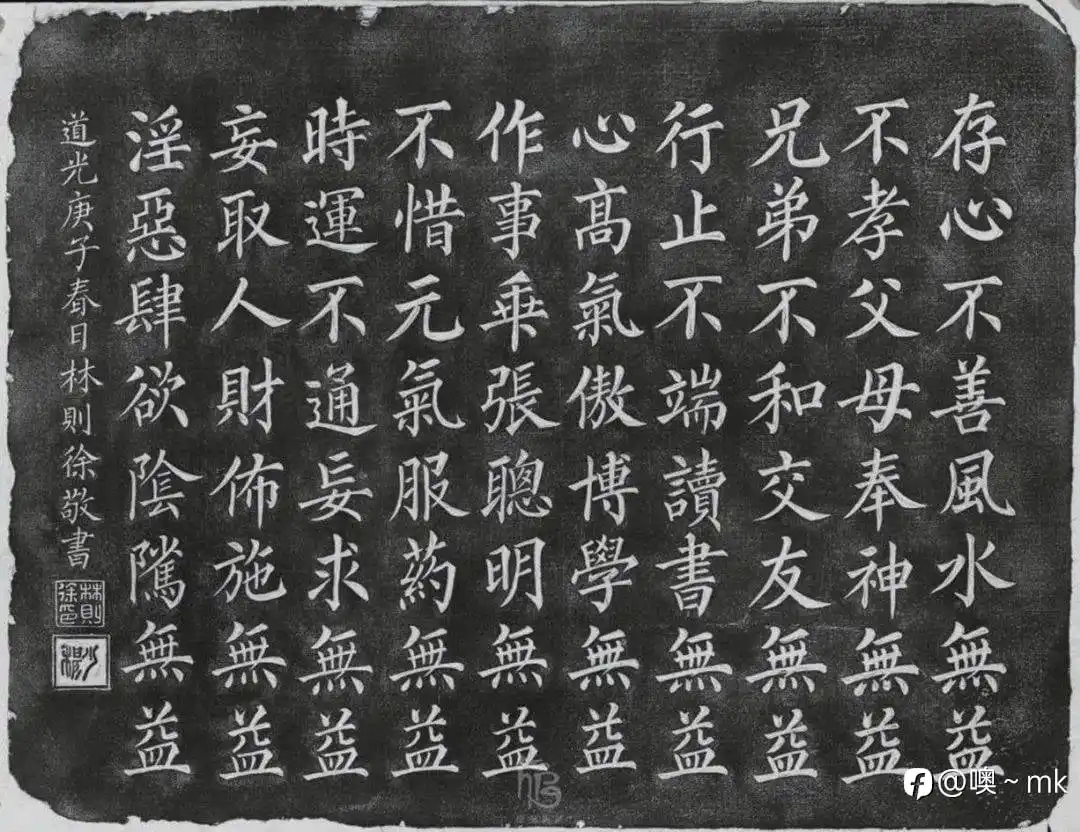 存心不善風水無益
不孝父母奉神無益
兄弟不和交友無益
行止不端讀書無益
心高氣傲博學無益
作事乗張聰明無益
不惜元氣服葯無益
時運不通妄求無益
妄取人財佈施無益
淫惡肆欲陰隲無益
道光庚子春日林則徐敬書
林則徐印
@噢~mk